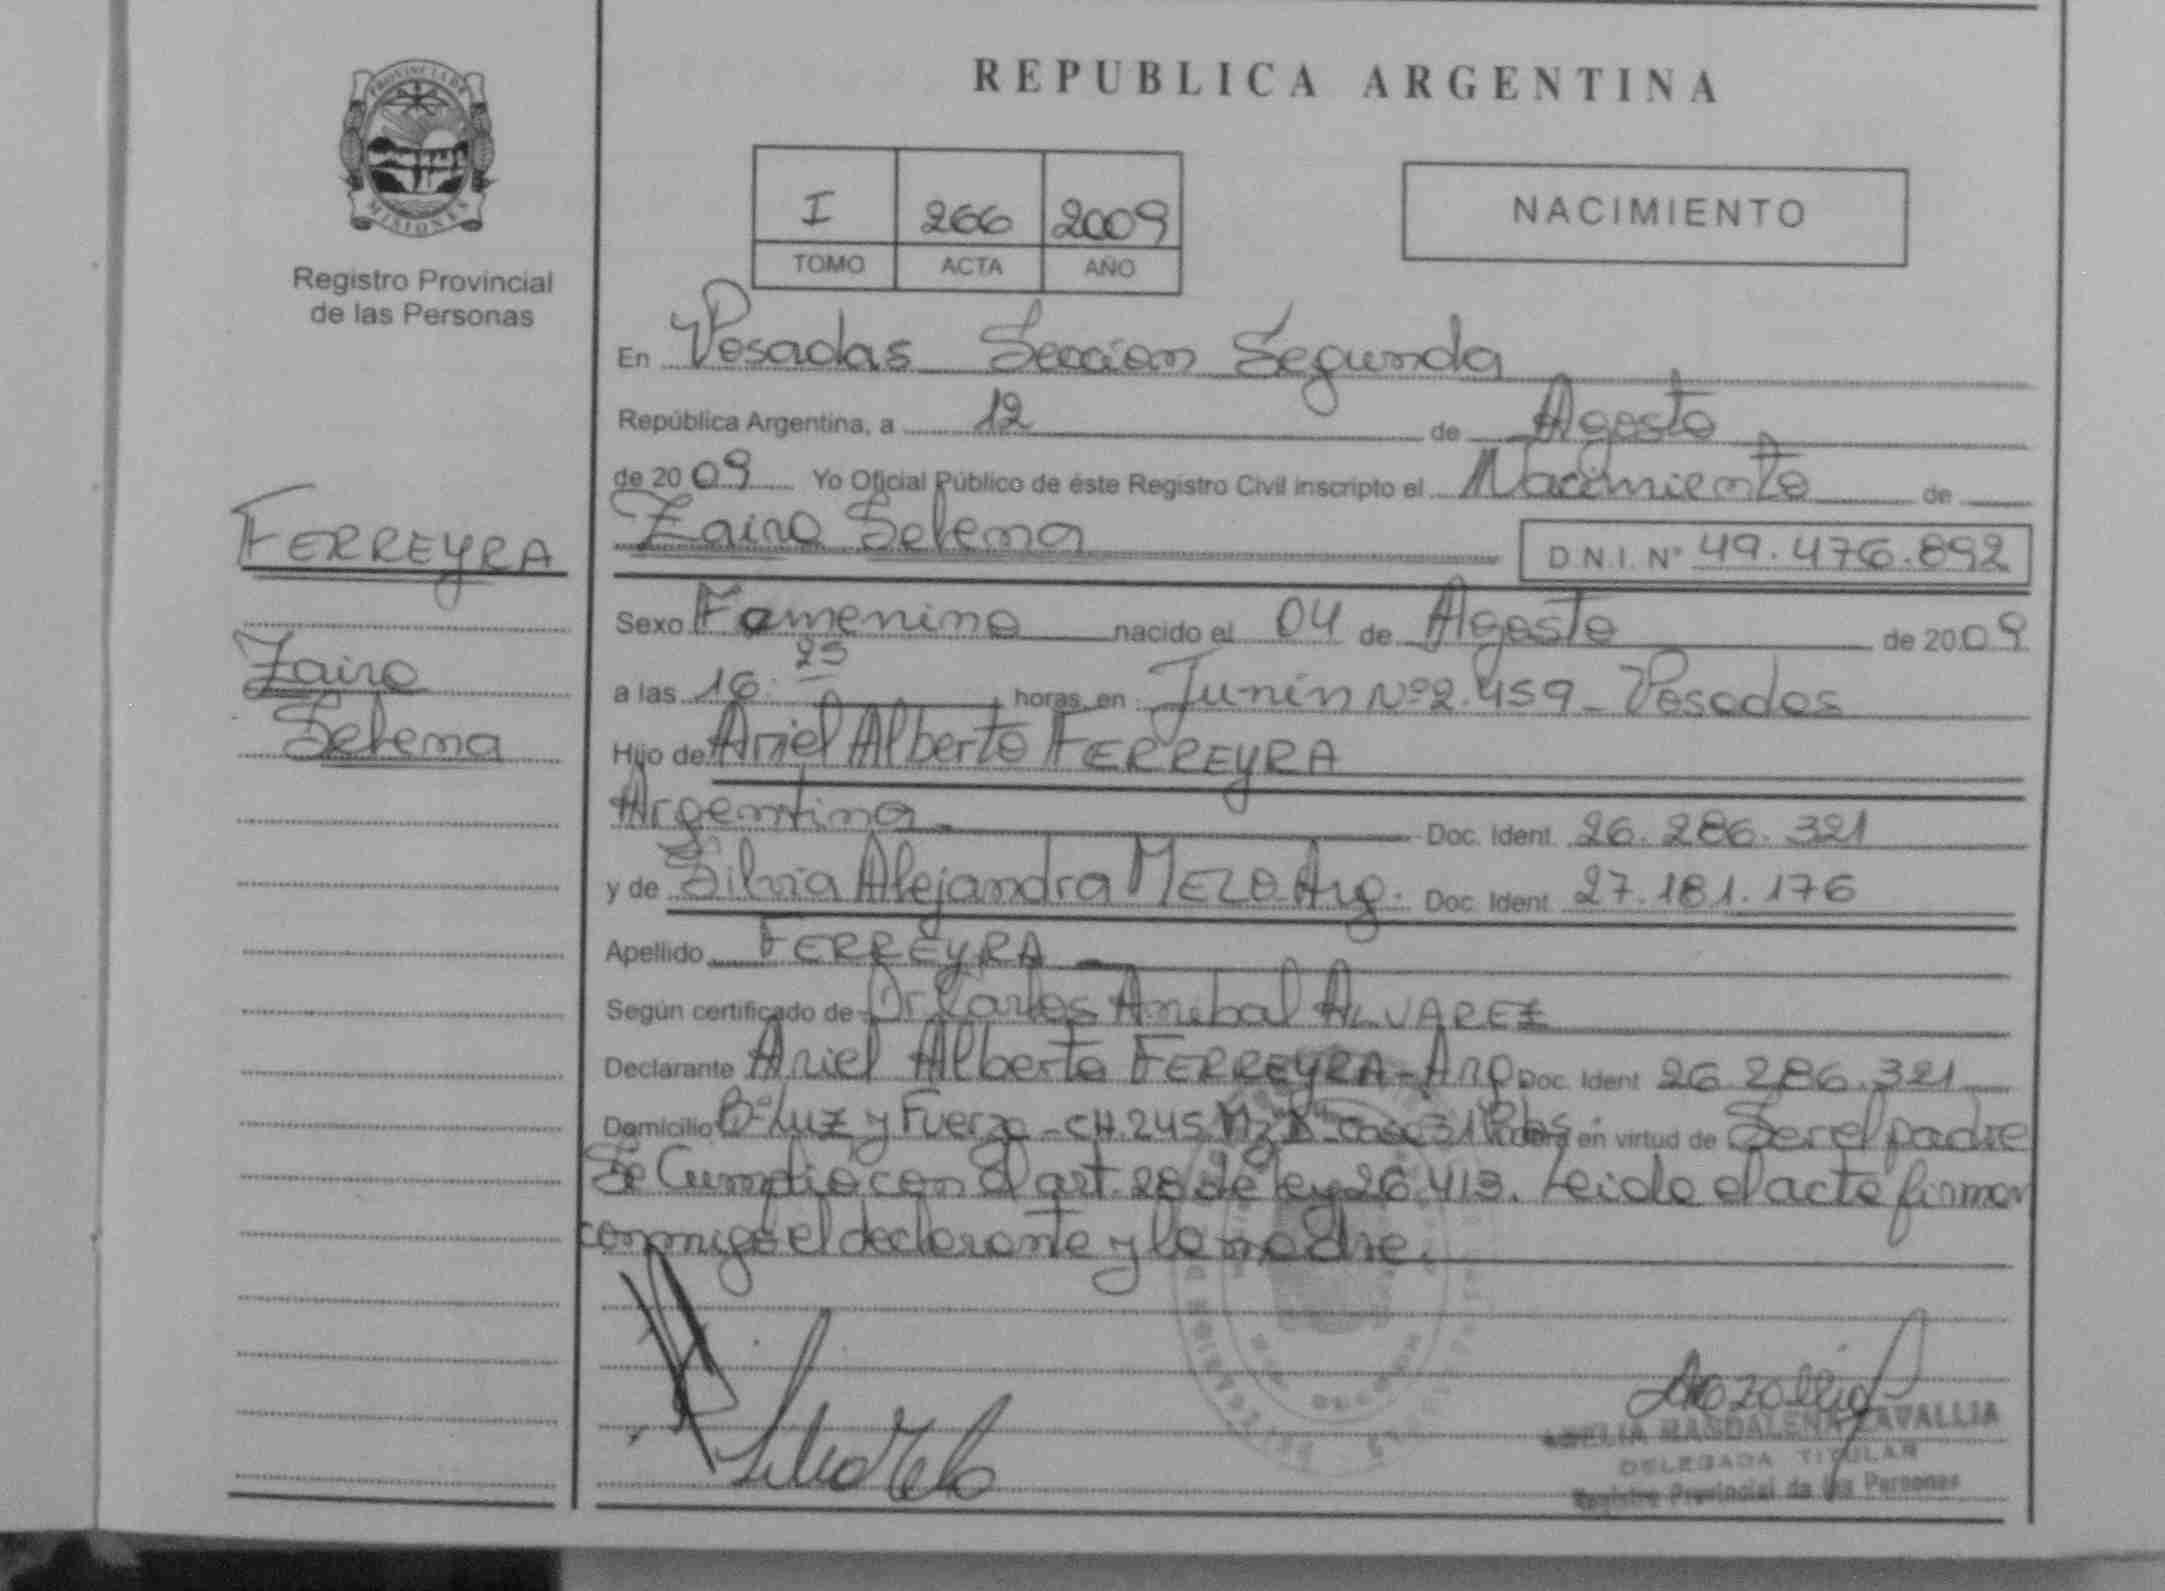 REPUBLICA ARGENTINA
PROVINCIA DE
MISIONES
Registro Provincial
de las Personas
I 266 2009
TOMO ACTA AÑO
NACIMIENTO
En Posadas Seccion Segunda
República Argentina, a 12 de Agosto
de 2009 Yo Oficial Público de éste Registro Civil inscripto el Nacimiento de
Zaira Selena
D.N.I. Nº 49.476.892
FERREYRA
Zaira
Selena
Sexo Femenino nacido el 04 de Agosto de 2009
a las 16:25 horas, en Junín Nº 2.459 - Posadas
Hijo de Ariel Alberto FERREYRA
Argentina Doc. Ident. 26.286.321
y de Silvia Alejandra MELO Arg. Doc. Ident. 27.181.176
Apellido FERREYRA
Según certificado de Dr. Carlos Anibal ALVAREZ
Declarante Ariel Alberto FERREYRA - Arg Doc. Ident 26.286.321
Domicilio Bº Luz y Fuerza - CH. 245 Mz casa 31 Pdas en virtud de Ser el padre
Se Cumplio con el art. 28 de ley 26.413. Leida el acta firman
conmigo el declarante y la madre.
MAGDALENA ZAVALLIA
DELEGADA TITULAR
Registro Provincial de las Personas